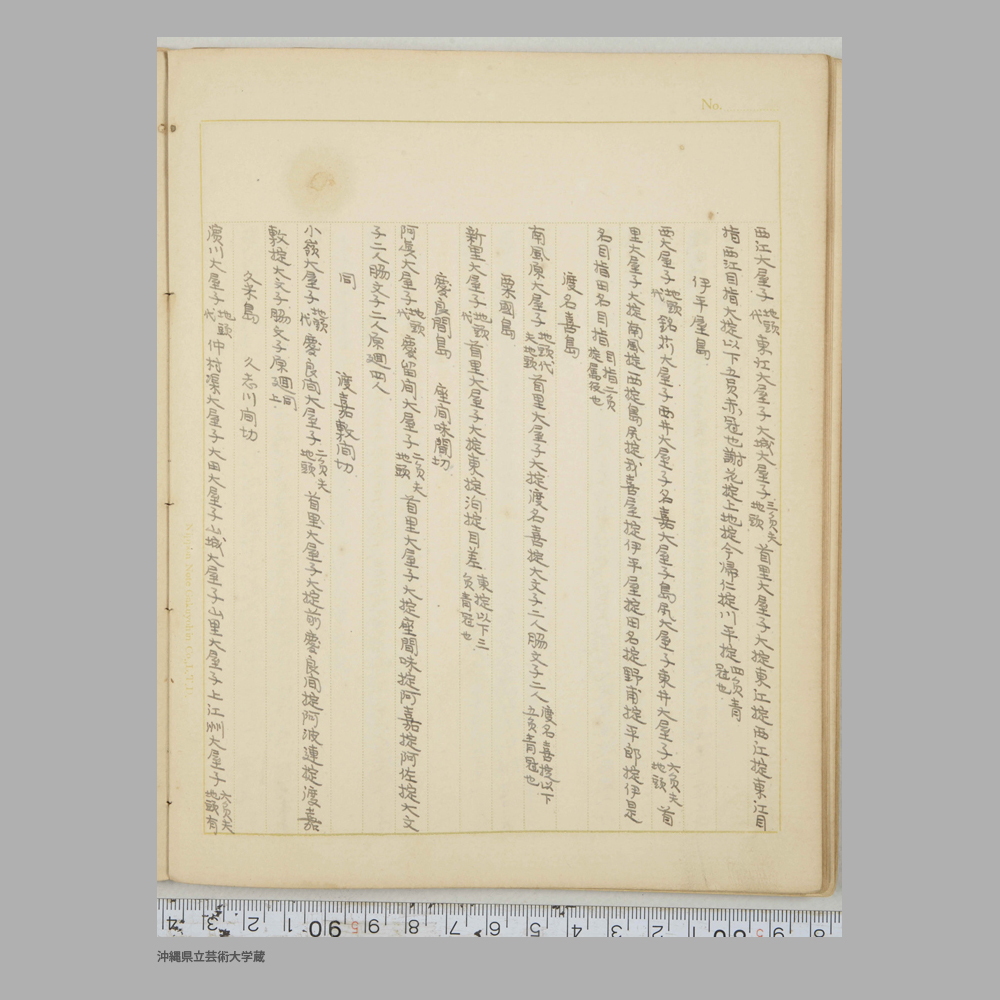 No.
西江大屋子地頭代東江大屋子大城大屋子三員夫地頭首里大屋子大掟東江掟西江掟東江目
指西江目指大掟以下五員赤冠也謝花掟上地掟今帰仁掟川平掟四員青冠也
伊平屋島
西大屋子地頭代銘苅大屋子西井大屋子名嘉大屋子島尻大屋子東井大屋子六員夫地頭首
里大屋子大掟南風掟西掟島尻掟我喜屋掟伊平屋掟田名掟野甫掟平郎掟伊是
名目指田名目指目指二員掟属役也
渡名喜島
南風原大屋子地頭代夫地頭首里大屋子大掟渡名喜掟大文子二人脇文子二人渡名喜掟以下五員青冠也
粟國島
新里大屋子地頭代首里大屋子大掟東掟泊掟目差東掟以下三員青冠也
慶良間島 座間味間切
阿真大屋子地頭代慶留間大屋子二員夫地頭首里大屋子大掟座間味掟阿嘉掟阿佐掟大文
子二人脇文子二人原廻四人
同 渡嘉敷間切
小嶺大屋子地頭代慶良間大屋子二員夫地頭首里大屋子大掟前慶良間掟阿波連掟渡嘉
敷掟大文子脇文子原廻同上
久米島 久志川間切
濱川大屋子地頭代仲村渠大屋子大田大屋子山城大屋子山里大屋子上江洲大屋子六員夫地頭有
沖縄県立芸術大学蔵